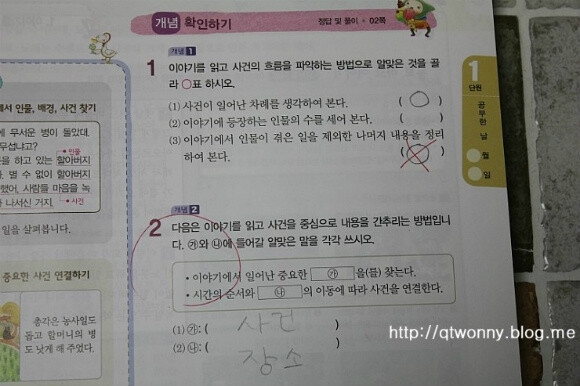 개념 확인하기
정답 및 풀이 • 02쪽
개념 1
1 이야기를 읽고 사건의 흐름을 파악하는 방법으로 알맞은 것을 골
라 ○표 하시오.
(1) 사건이 일어난 차례를 생각하여 본다. ( ○ )
(2) 이야기에 등장하는 인물의 수를 세어 본다. ( )
(3) 이야기에서 인물이 겪은 일을 제외한 나머지 내용을 정리
하여 본다. ( ○ )
개념 2
2 다음은 이야기를 읽고 사건을 중심으로 내용을 간추리는 방법입니
다. ㉮와 ㉯에 들어갈 알맞은 말을 각각 쓰시오.
• 이야기에서 일어난 중요한 ㉮ 을(를) 찾는다.
• 시간의 순서와 ㉯ 의 이동에 따라 사건을 연결한다.
(1) ㉮: ( 사건 )
(2) ㉯: ( 장소 )
1
단원
공부한 날
월
일
에서 인물, 배경, 사건 찾기
에 무서운 병이 돌았대.
무섭냐고?
인물
을 하고 있는 할아버지
. 별 수 없이 할아버지
했어, 사람들 마음을 녹
나서신 거지.
사건
일을 살펴봅니다.
중요한 사건 연결하기
총각은 농사일도
돕고 할머니의 병
도 낫게 해 주었다.
http://qtwonny.blog.me